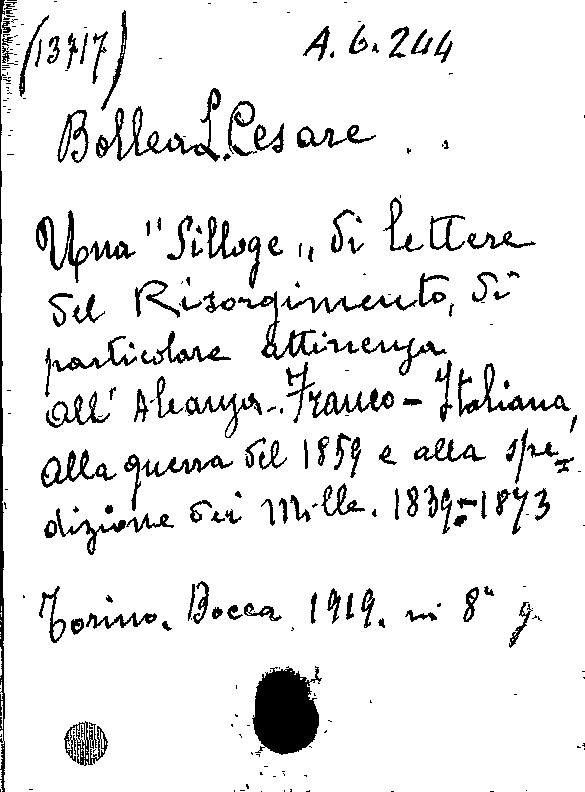 (13717) A. 6. 244
Bollea L. Cesare
Una "Silloge„ di lettere
del Risorgimento, di
particolare attinenza
all'Aleanza-Franco-Italiana,
alla guerra del 1859 e alla spe=
dizione dei Mille. 1839-1873
Torino. Bocca 1919. in 8° g.